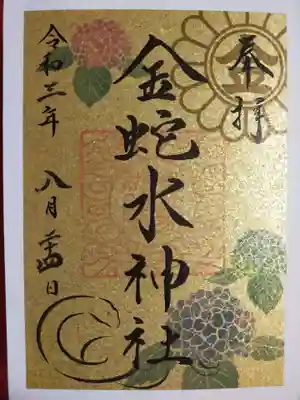 奉拝
金
金蛇水神社
令和三年 八月廿四日